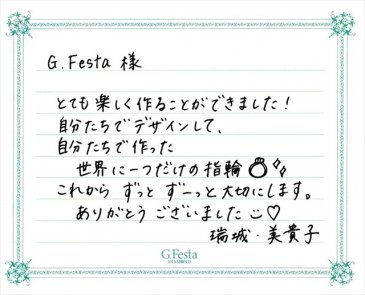 G.Festa 様
とても楽しく作ることができました!
自分たちでデザインして、
自分たちで作った
世界に一つだけの指輪
これから ずっと ずーっと大切にします。
ありがとう ございました♡
瑞城・美貴子
G.Festa
DIAMOND